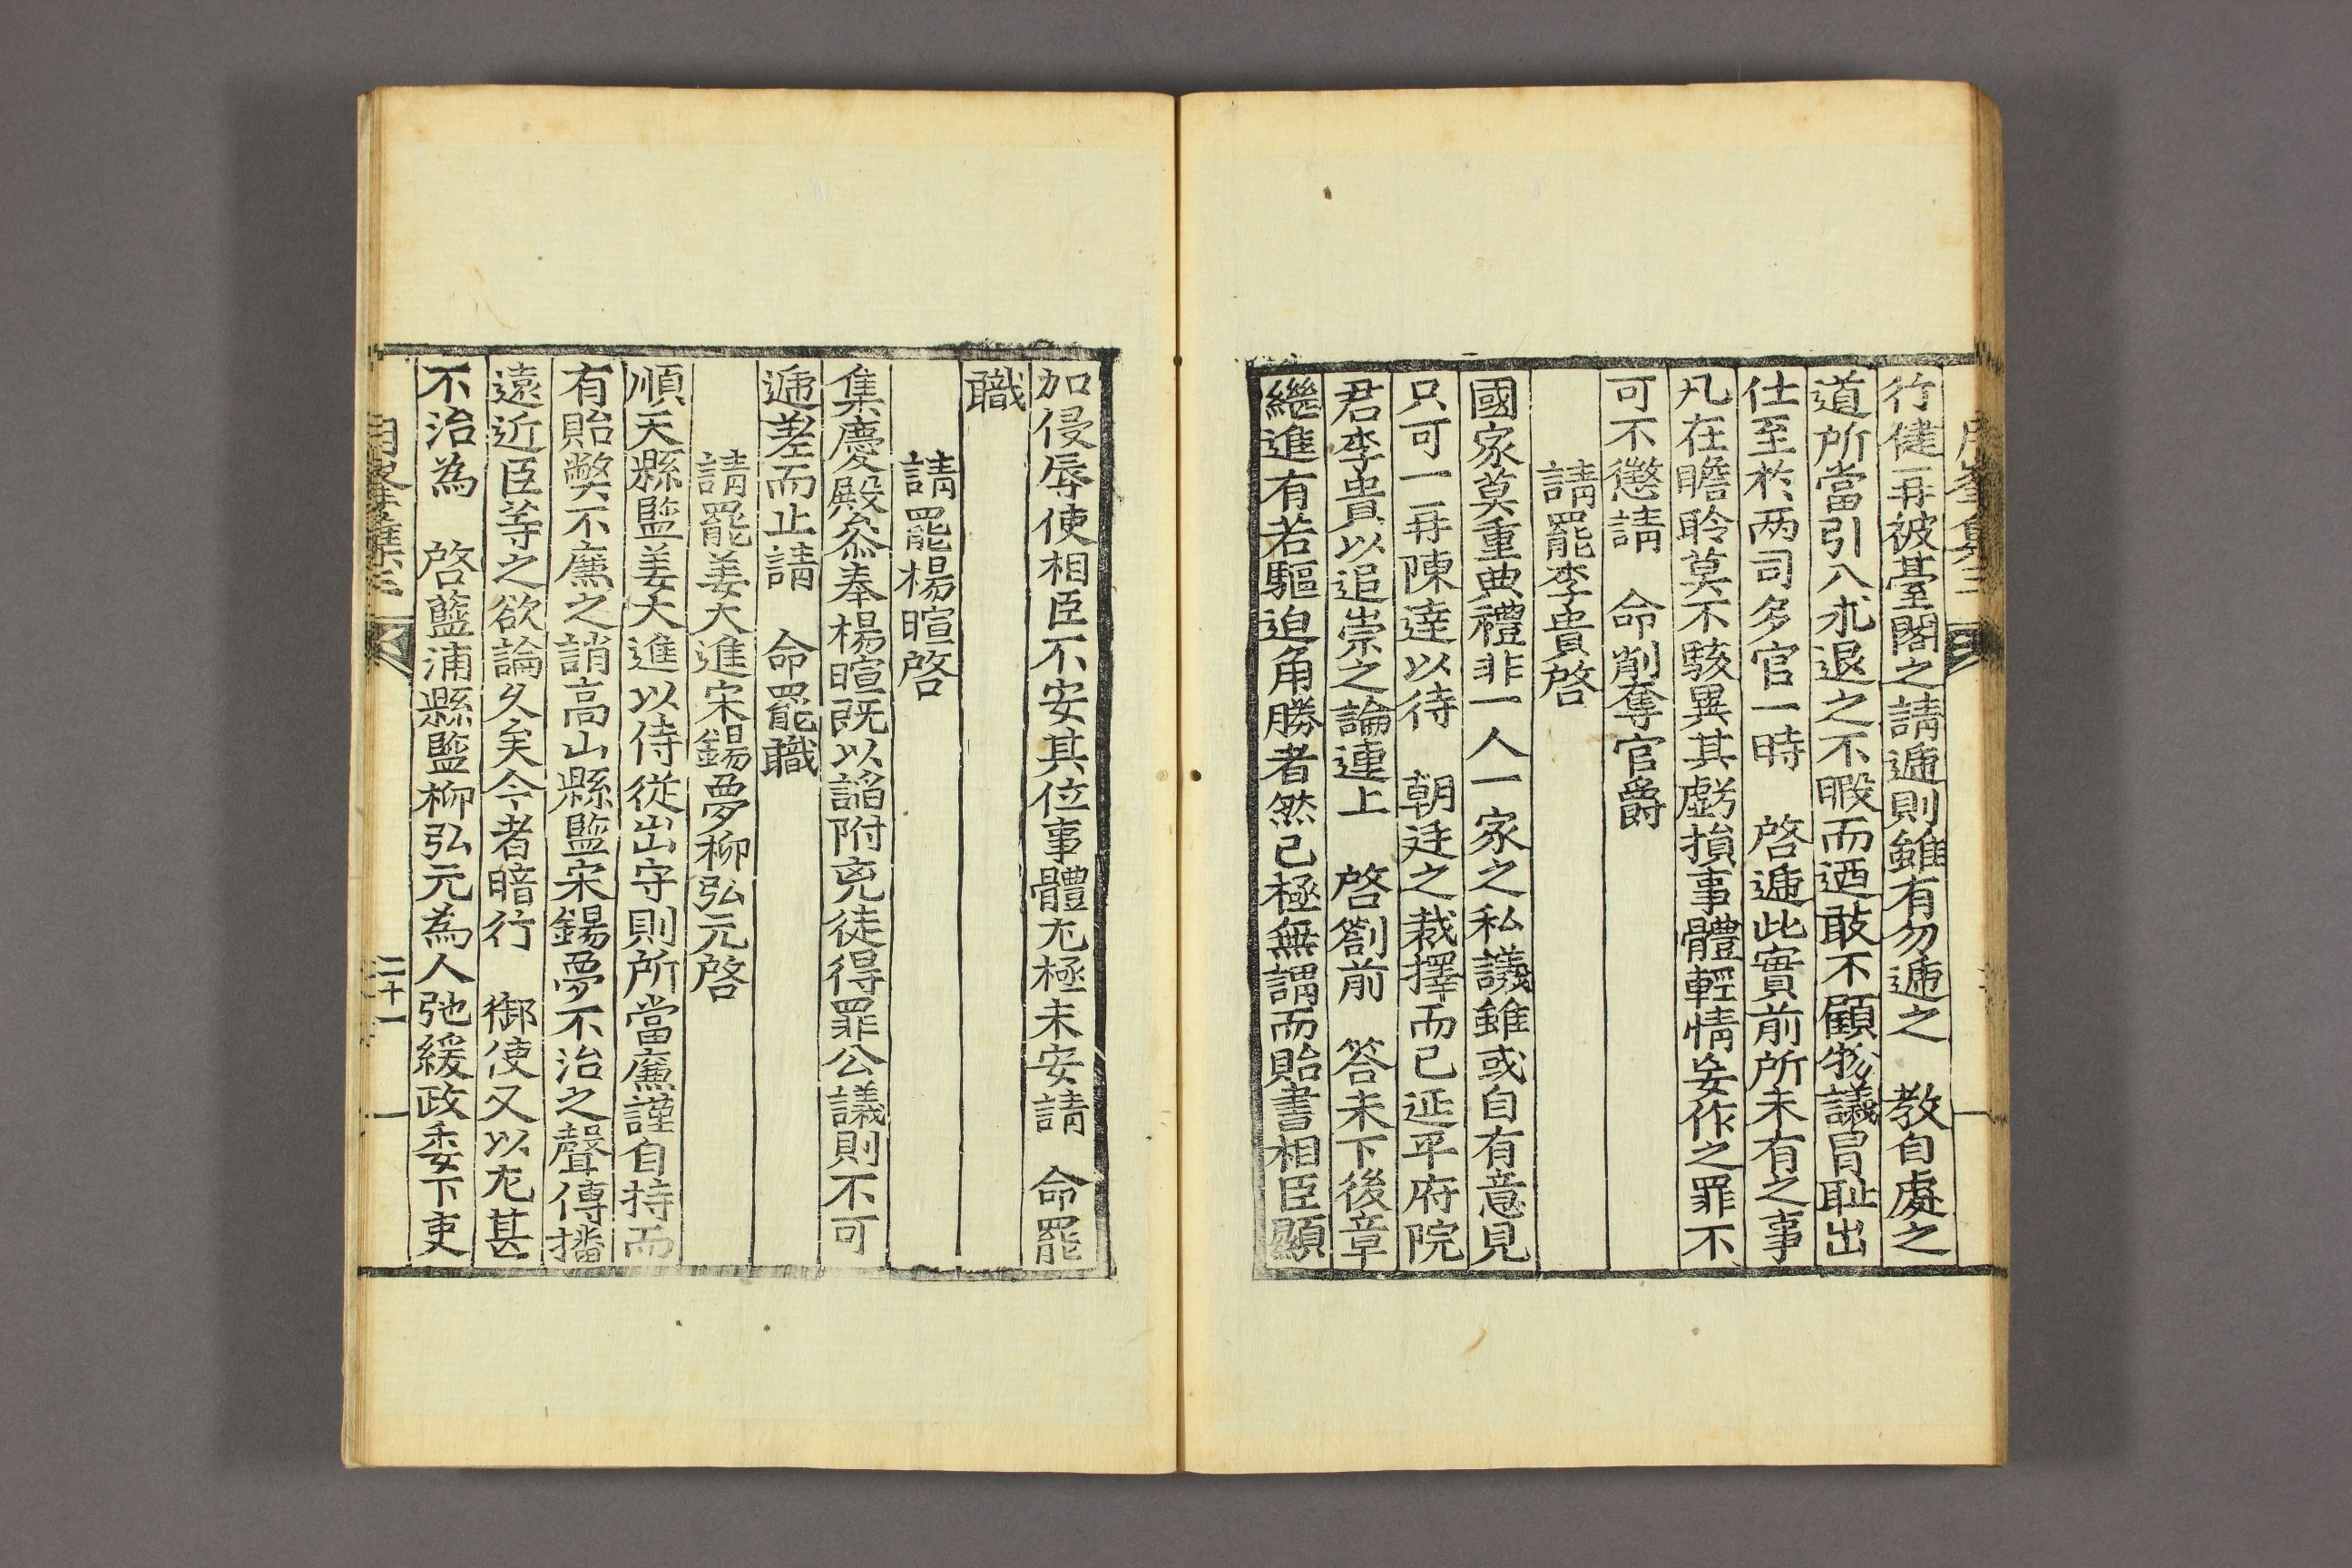 行健再被臺閣之請遞則雖有勿遞之 教自處之
道所當引入求退之不暇而迺敢不顧物議冒耻出
仕至於两司多官一時 啓遞此實前所未有之事
凡在瞻聆莫不駭異其虧損事體輕情妄作之罪不
可不懲請 命削奪官爵
請罷李貴啓
國家莫重典禮非一人一家之私議雖或自有意見
只可一再陳達以待 朝廷之裁擇而已延平府院
君李貴以追崇之論連上 啓劄前 答未下後章
繼進有若驅迫角勝者然已極無謂而貽書相臣顯
加侵辱使相臣不安其位事體尤極未安請 命罷
職
請罷楊暄啓
集慶殿叅奉楊暄既以謟附兇徒得罪公議則不可
遞差而止請 命罷職
請罷姜大進宋錫夢柳弘元啓
順天縣監姜大進以侍從出守則所當廉謹自持而
有貽獘不廉之誚高山縣監宋錫夢不治之聲傳播
遠近臣等之欲論久矣今者暗行 御使又以尤甚
不治為 啓藍浦縣監柳弘元為人弛緩政委下吏
二十一